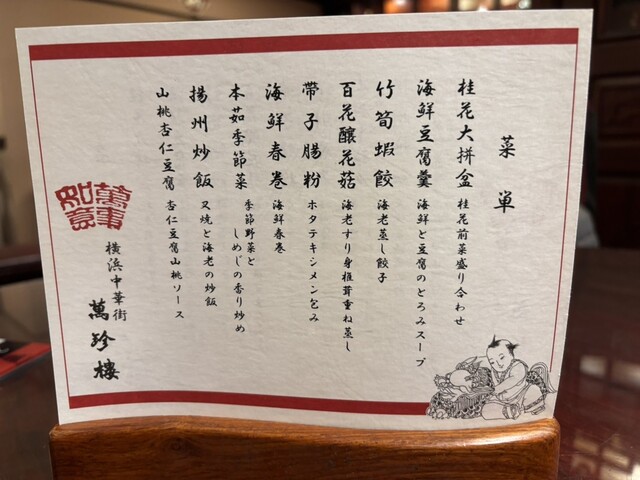 菜単
桂花大拼盆 桂花前菜盛り合わせ
海鮮豆腐羹 海鮮と豆腐のとろみスープ
竹筍蝦餃 海老蒸し餃子
百花釀花菇 海老すり身椎茸重ね蒸し
帶子腸粉 ホタテキシメン包み
海鮮春巻 海鮮春巻
本菇季節菜 季節野菜と
しめじの香り炒め
揚州炒飯 叉焼と海老の炒飯
山桃杏仁豆腐 杏仁豆腐山桃ソース
横浜中華街
萬珍樓
萬事如意